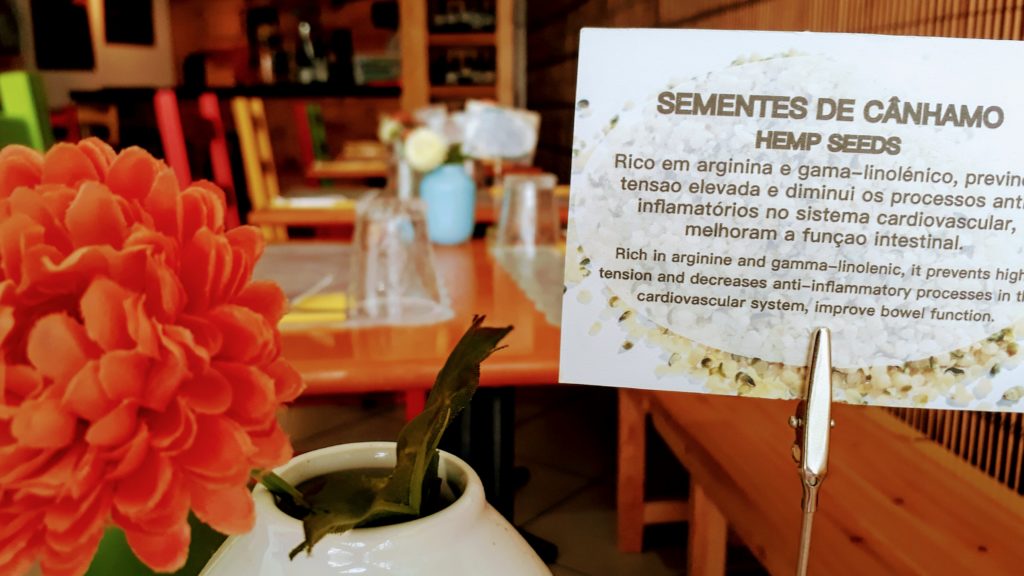 SEMENTES DE CÂNHAMO
HEMP SEEDS
Rico em arginina e gama-linolénico, previne
tensao elevada e diminui os processos anti
inflamatórios no sistema cardiovascular,
melhoram a funçao intestinal.
Rich in arginine and gamma-linolenic, it prevents high
tension and decreases anti-inflammatory processes in th
cardiovascular system, improve bowel function.